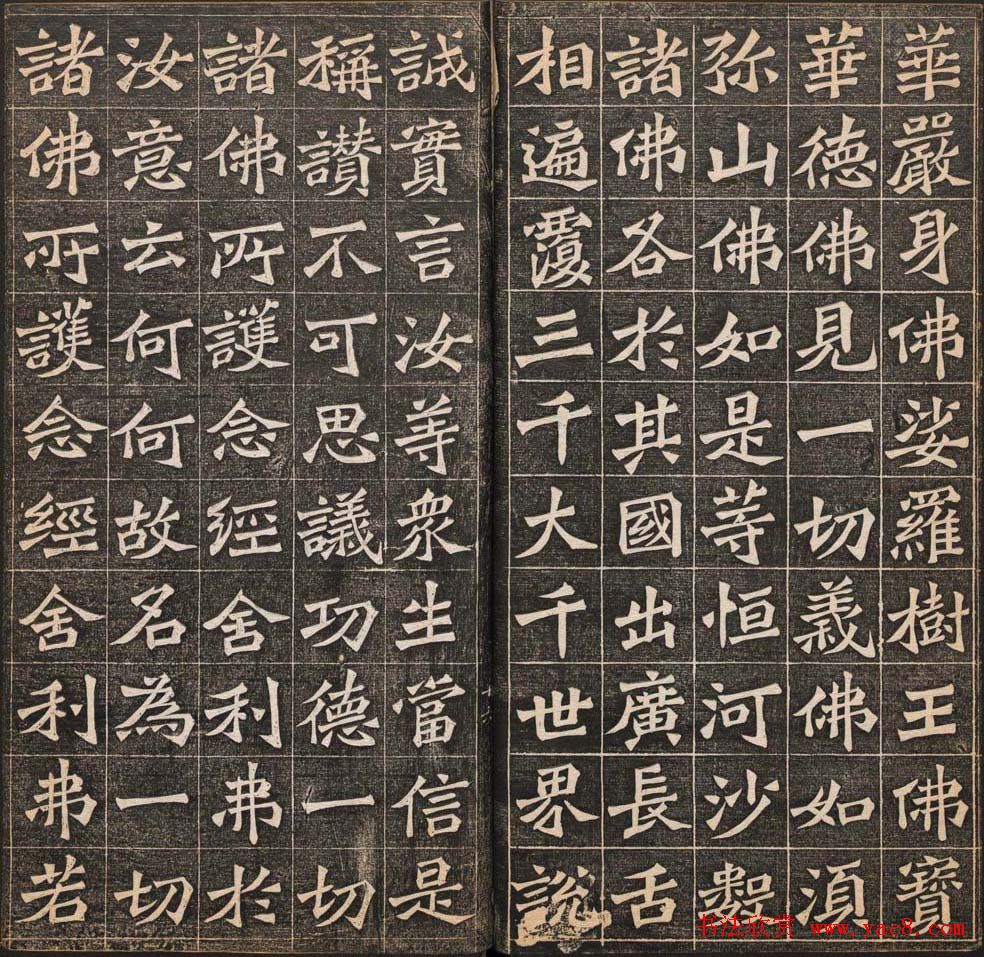 華嚴身佛娑羅樹王佛寶
華德佛見一切義佛如須
弥山佛如是等恒河沙數
諸佛各於其國出廣長舌
相遍覆三千大千世界說
誠實言汝等眾生當信是
稱讚不可思議功德一切
諸佛所護念經舍利弗於
汝意云何何故名為一切
諸佛所護念經舍利弗若
书法欣赏 www.yac8.com